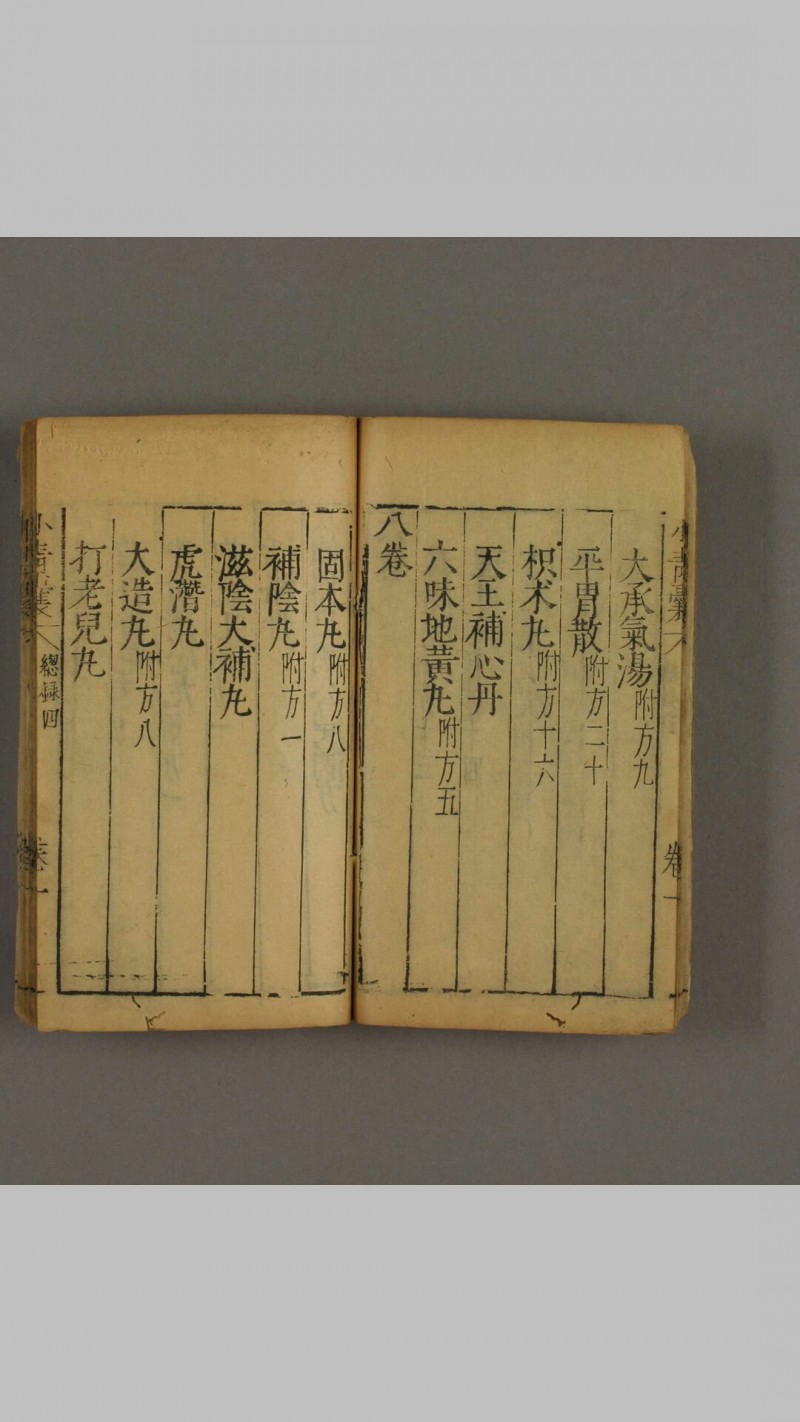 大承氣湯附方九
平胃散附方二十
枳朮丸附方十六
天王補心丹
六味地黃丸附方五
八卷
固本丸附方八
補陰丸附方一
滋陰大補丸
虎潛丸
大造丸附方八
打老兒丸
小青囊
總錄四
卷一
小青囊
卷一